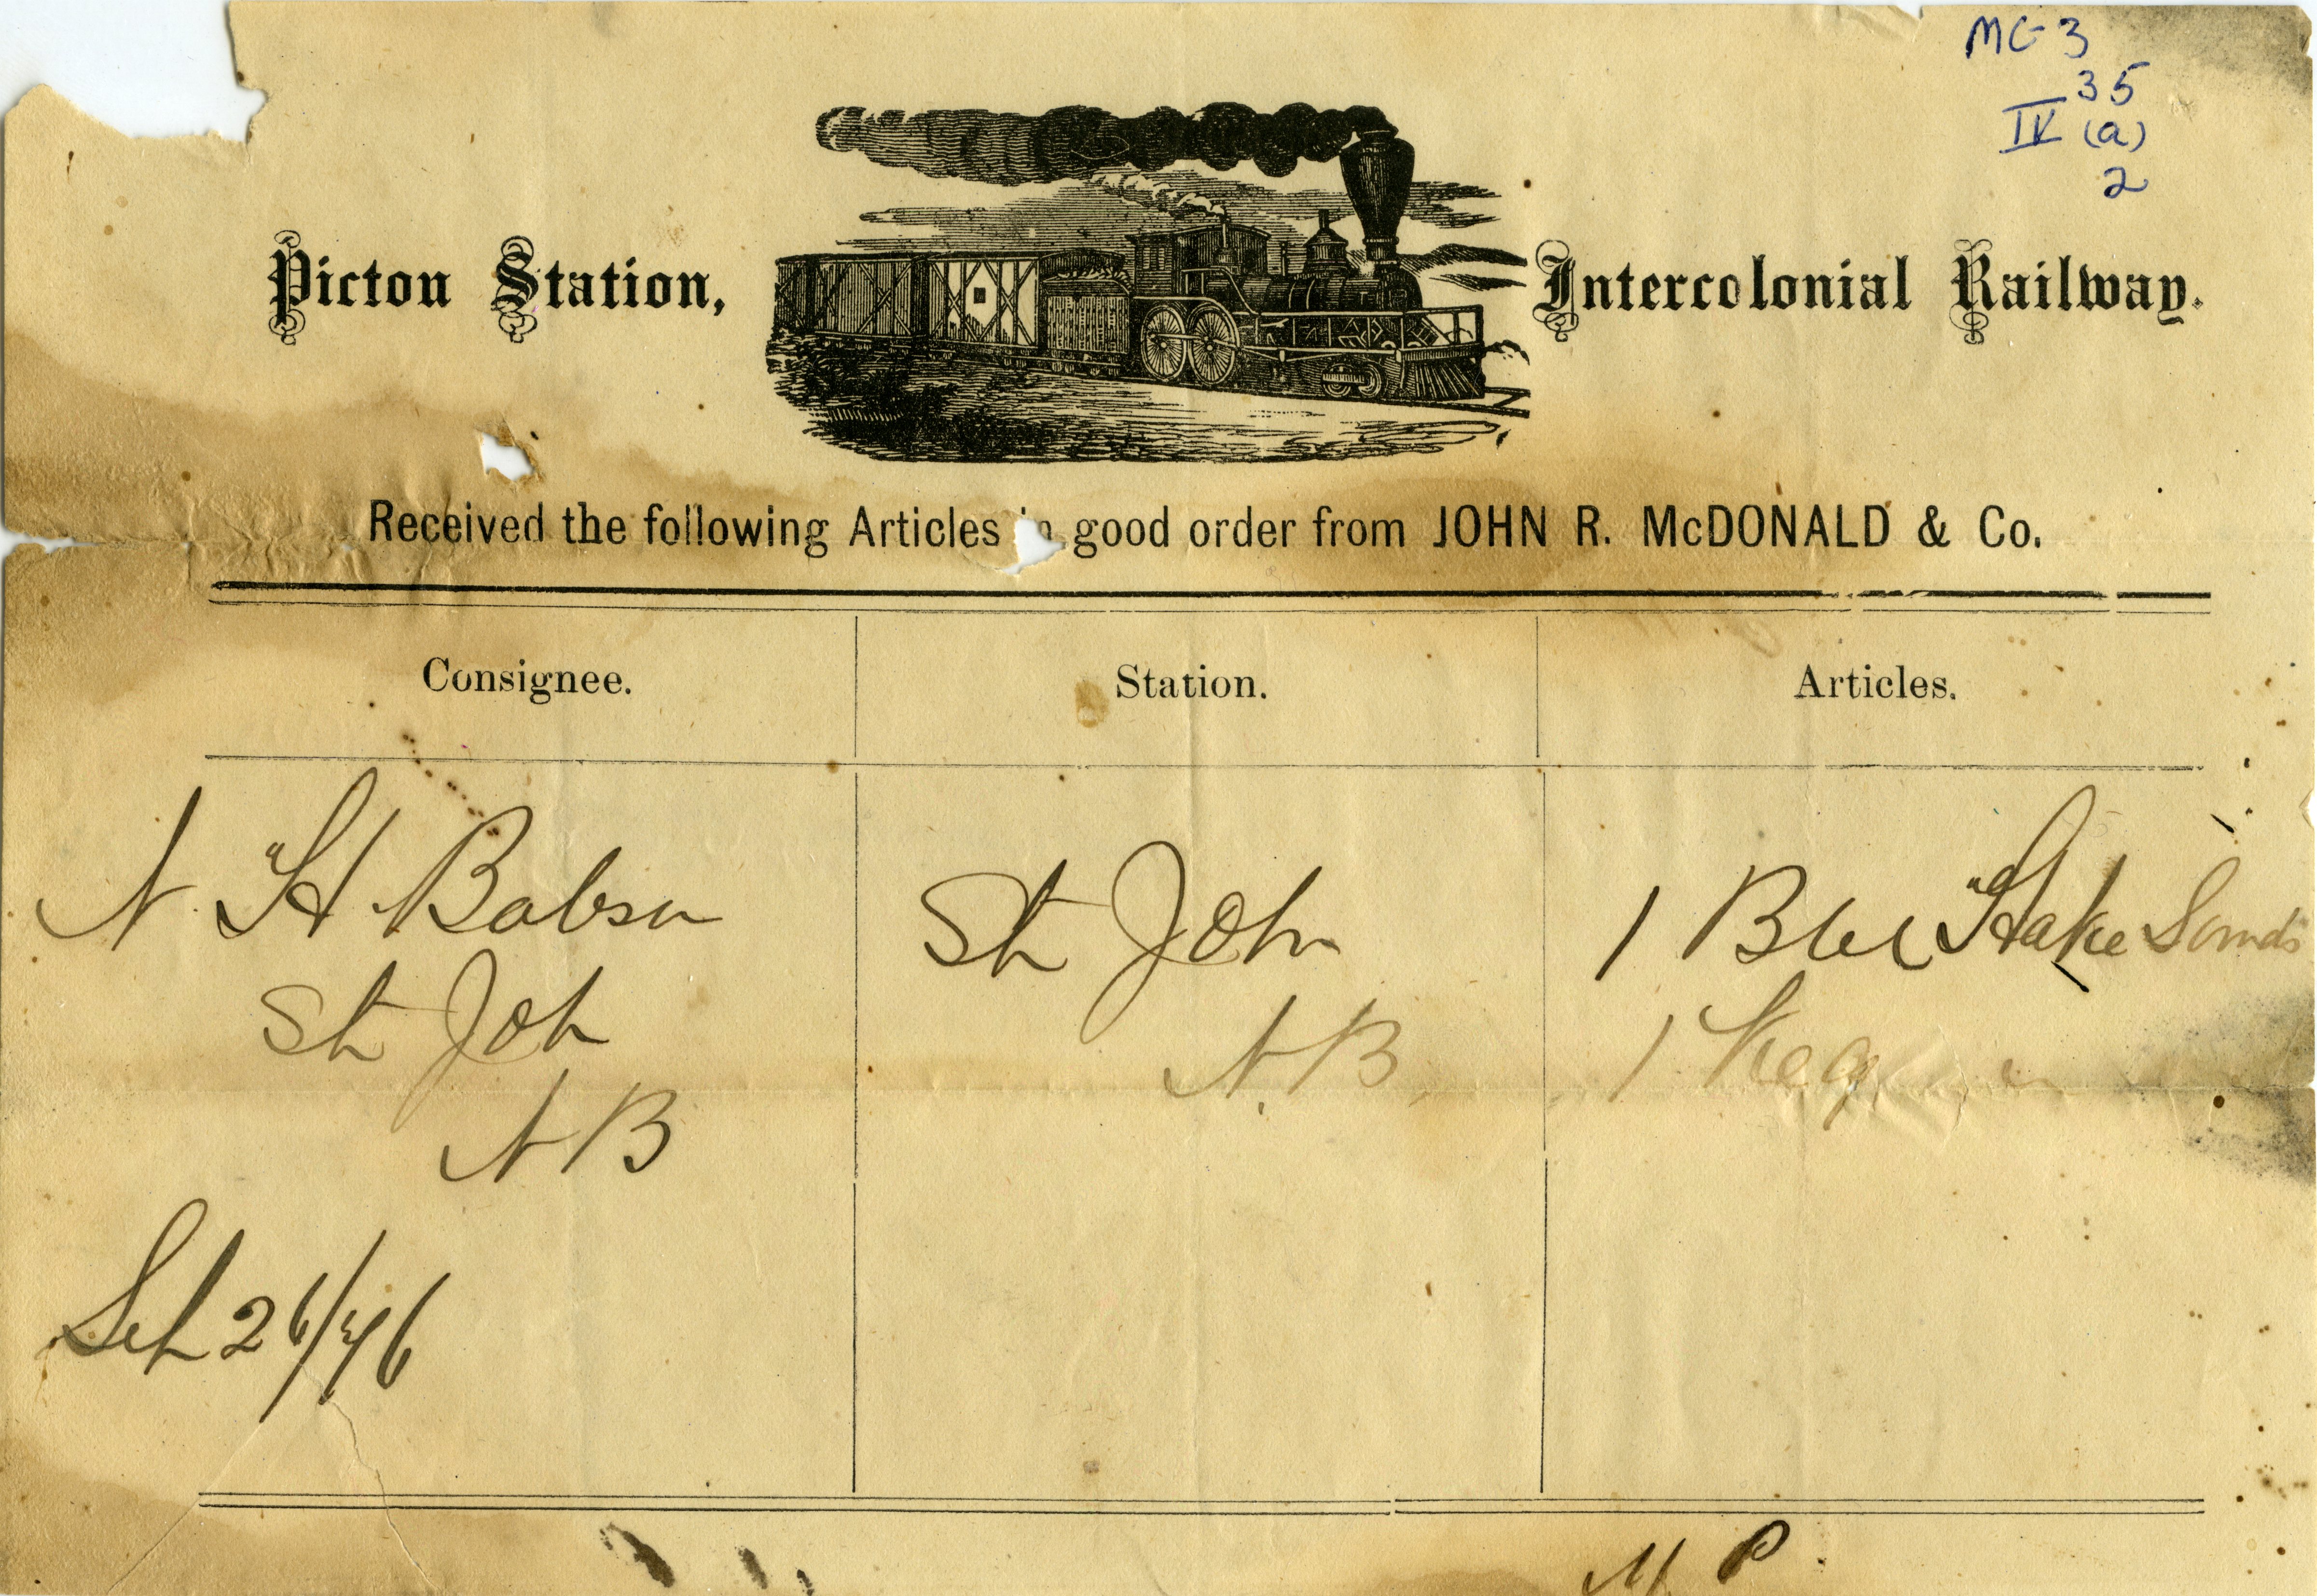 MG 3
35
IV (a)
2
Pictou Station, Intercolonial Railway.
Received the following Articles in good order from JOHN R. McDONALD & Co.
Consignee. Station. Articles.
N. H Babson St John 1 Bbl Hake Sounds
St Joh N.B. 1 Keg
N B
26/76
M P.